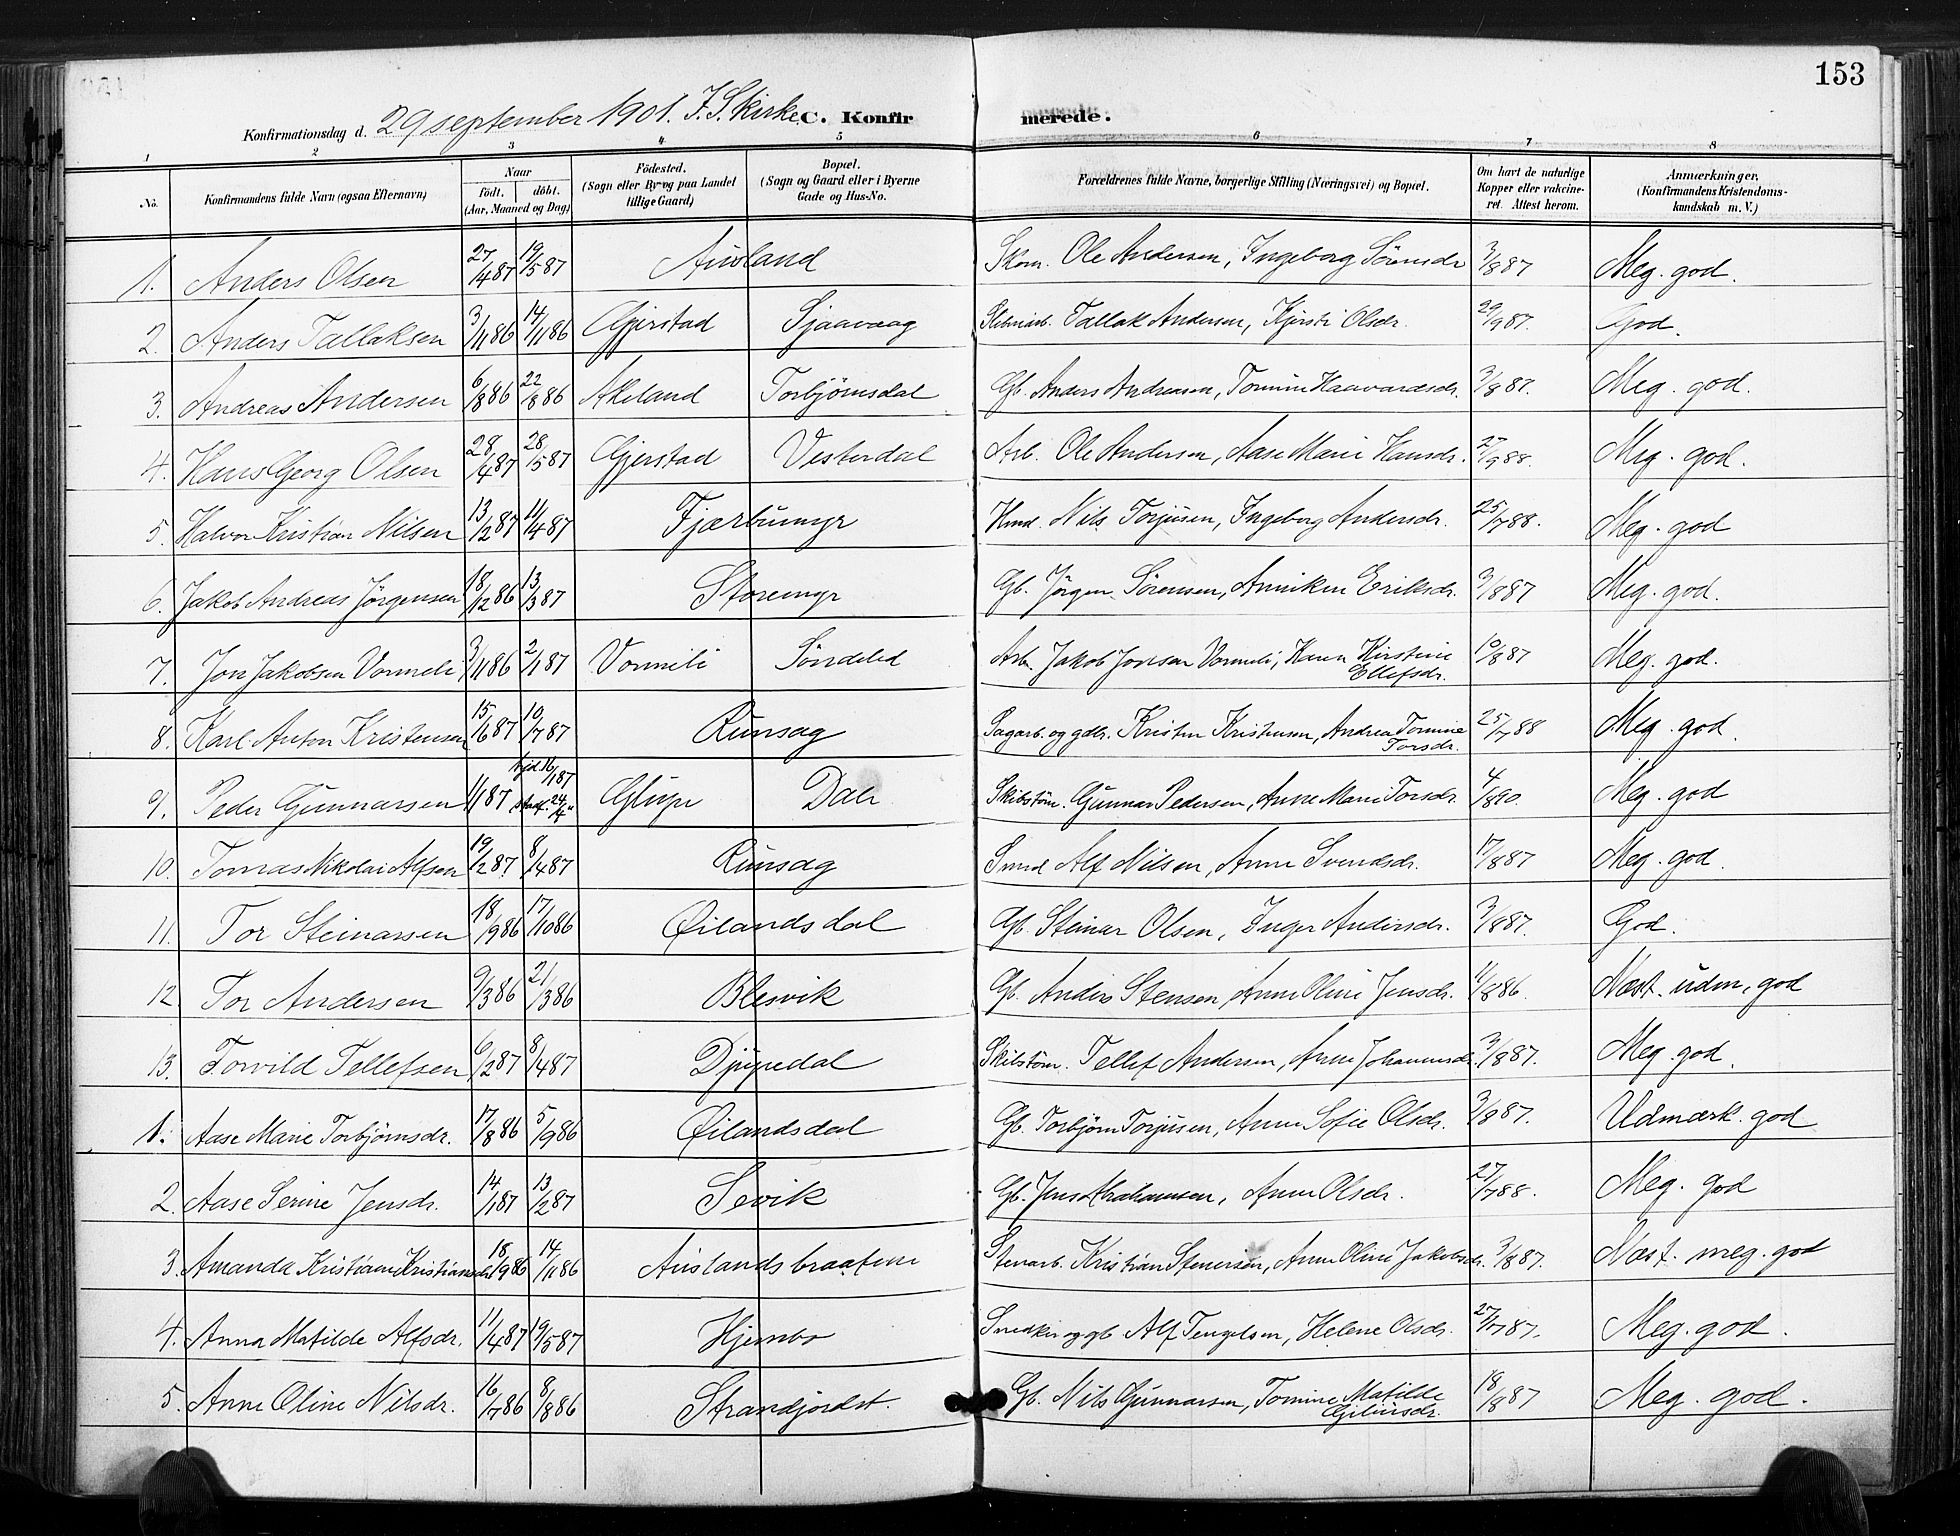 153
Konfirmationsdag d. 29 september 1901. I. S. kirke. C. Konfirmerede.
1 2 3 4 5 6 7 8
No. Konfirmandens fulde Navn (ogsaa Efternavn) Naar födt. döbt. (Aar, Maaned og Dag) Födested. (Sogn eller By og paa Landet tillige Gaard) Bopæl. (Sogn og Gaard eller i Byerne Gade og Hus-No. Forældrenes fulde Navne, borgerlige Stilling (Næringsvei) og Bopæl. Om havt de naturlige Kopper eller vakcineret. Attest herom. Anmærkninger. (Konfirmandens Kristendomskundskab m. V.)
1. Anders Olsen 27/4 87 19/5 87 Ausland Skom. Ole Andersen, Ingeborg Sörensdr 3/8 87 Meg. god.
2. Anders Tallaksen 3/11 86 14/11 86 Gjerstad Sjaavaag Tallak Andersen, Kjersti Olsdr. 29/9 87. God.
3. Andreas Andersen 6/8 86 22/8 86 Akeland Torbjörnsdal Gb. Anders Andreasen, Tomine Haavardsdr. 3/8 87. Meg. god.
4. Hans Georg Olsen 28/4 87 28/5 87 Gjerstad Vesterdal Arb. Ole Andersen, Aase Marie Hansdr. 27/9 88. Meg. god.
5. Halvor Kristian Nilsen 13/2 87 11/4 87 Fjærbumyr Hmd. Nils Torjusen, Ingeborg Andersdr. 25/7 88. Meg. god
6. Jakob Andreas Jörgensen 18/12 86 13/3 87 Storemyr Gb. Jörgen Sörensen, Anniken Eriksdr. 9/8 87 Meg. god.
7. Jon Jakobsen Vormeli 3/11 86 2/1 87 Vormeli Söndeled Arb. Jakob Jonsen Vormeli, Karen Kirstine Ellefsdr. 10/8 87 Meg. god.
8. Karl Anton Kristensen 15/6 87 10/7 87 Runsag Sagarb. og gdbr. Kristen Kristensen, Andrea Tomine Torsdr. 25/7 88 Meg. god.
9. Peder Gunnarsen 1/1 87 hjd. 16/1 87 stadf. 24/4 " Glupe Dale Skibstöm. Gunnar Pedersen, Anne Marie Torsdr. 4/8 90. Meg. god
10. Tomas Nikolai Alfsen 19/2 87. 8/4 87 Runsag Smed Alf Nilsen, Anne Svendsdr. 17/8 87 Meg. god.
11. Tor Steinarsen 18/9 86 17/10 86 Øilandsdal Gb. Steinar Olsen, Inger Andersdr. 3/8 87. God.
12. Tor Andersen 9/3 86 21/3 86 Blesvik Gb. Anders Stensen, Anne Oline Jensdr. 11/8 86. Næst. uden, god
13. Torvild Tellefsen 6/2 87 8/4 87 Djupedal Skibstöm. Tellef Andersen, Anne Johannesdr. 3/8 87. Meg. god.
1. Aase Marie Torbjörnsdr. 17/8 86 5/9 86 Øilandsdal Gb. Torbjörn Torjusen, Anne Sofie Olsdr. 3/8 87. Udmærk. god
2. Aase Serine Jensdr. 14/1 87 13/2 87 Sevik Gb. Jens Abrahamsen, Anne Olsdr. 27/7 88. Meg. god
3. Amanda Kristiane Kristiansdr 18/9 86 14/11 86 Auslandsbraatene Stenarb. Kristian Stenersen, Anne Oline Jakobsdr. 3/8 87. Næst. meg. god
4. Anna Matilde Alfsdr. 11/4 87 19/5 87 Hjembo Snedker og gb. Alf Tengelsen, Helene Olsdr. 27/7 87. Meg. god.
5. Anne Oline Nilsdr. 16/7 86 8/8 86 Strandjordet. Gb. Nils Gunnarsen, Tomine Matilde 18/8 87 Meg. god.